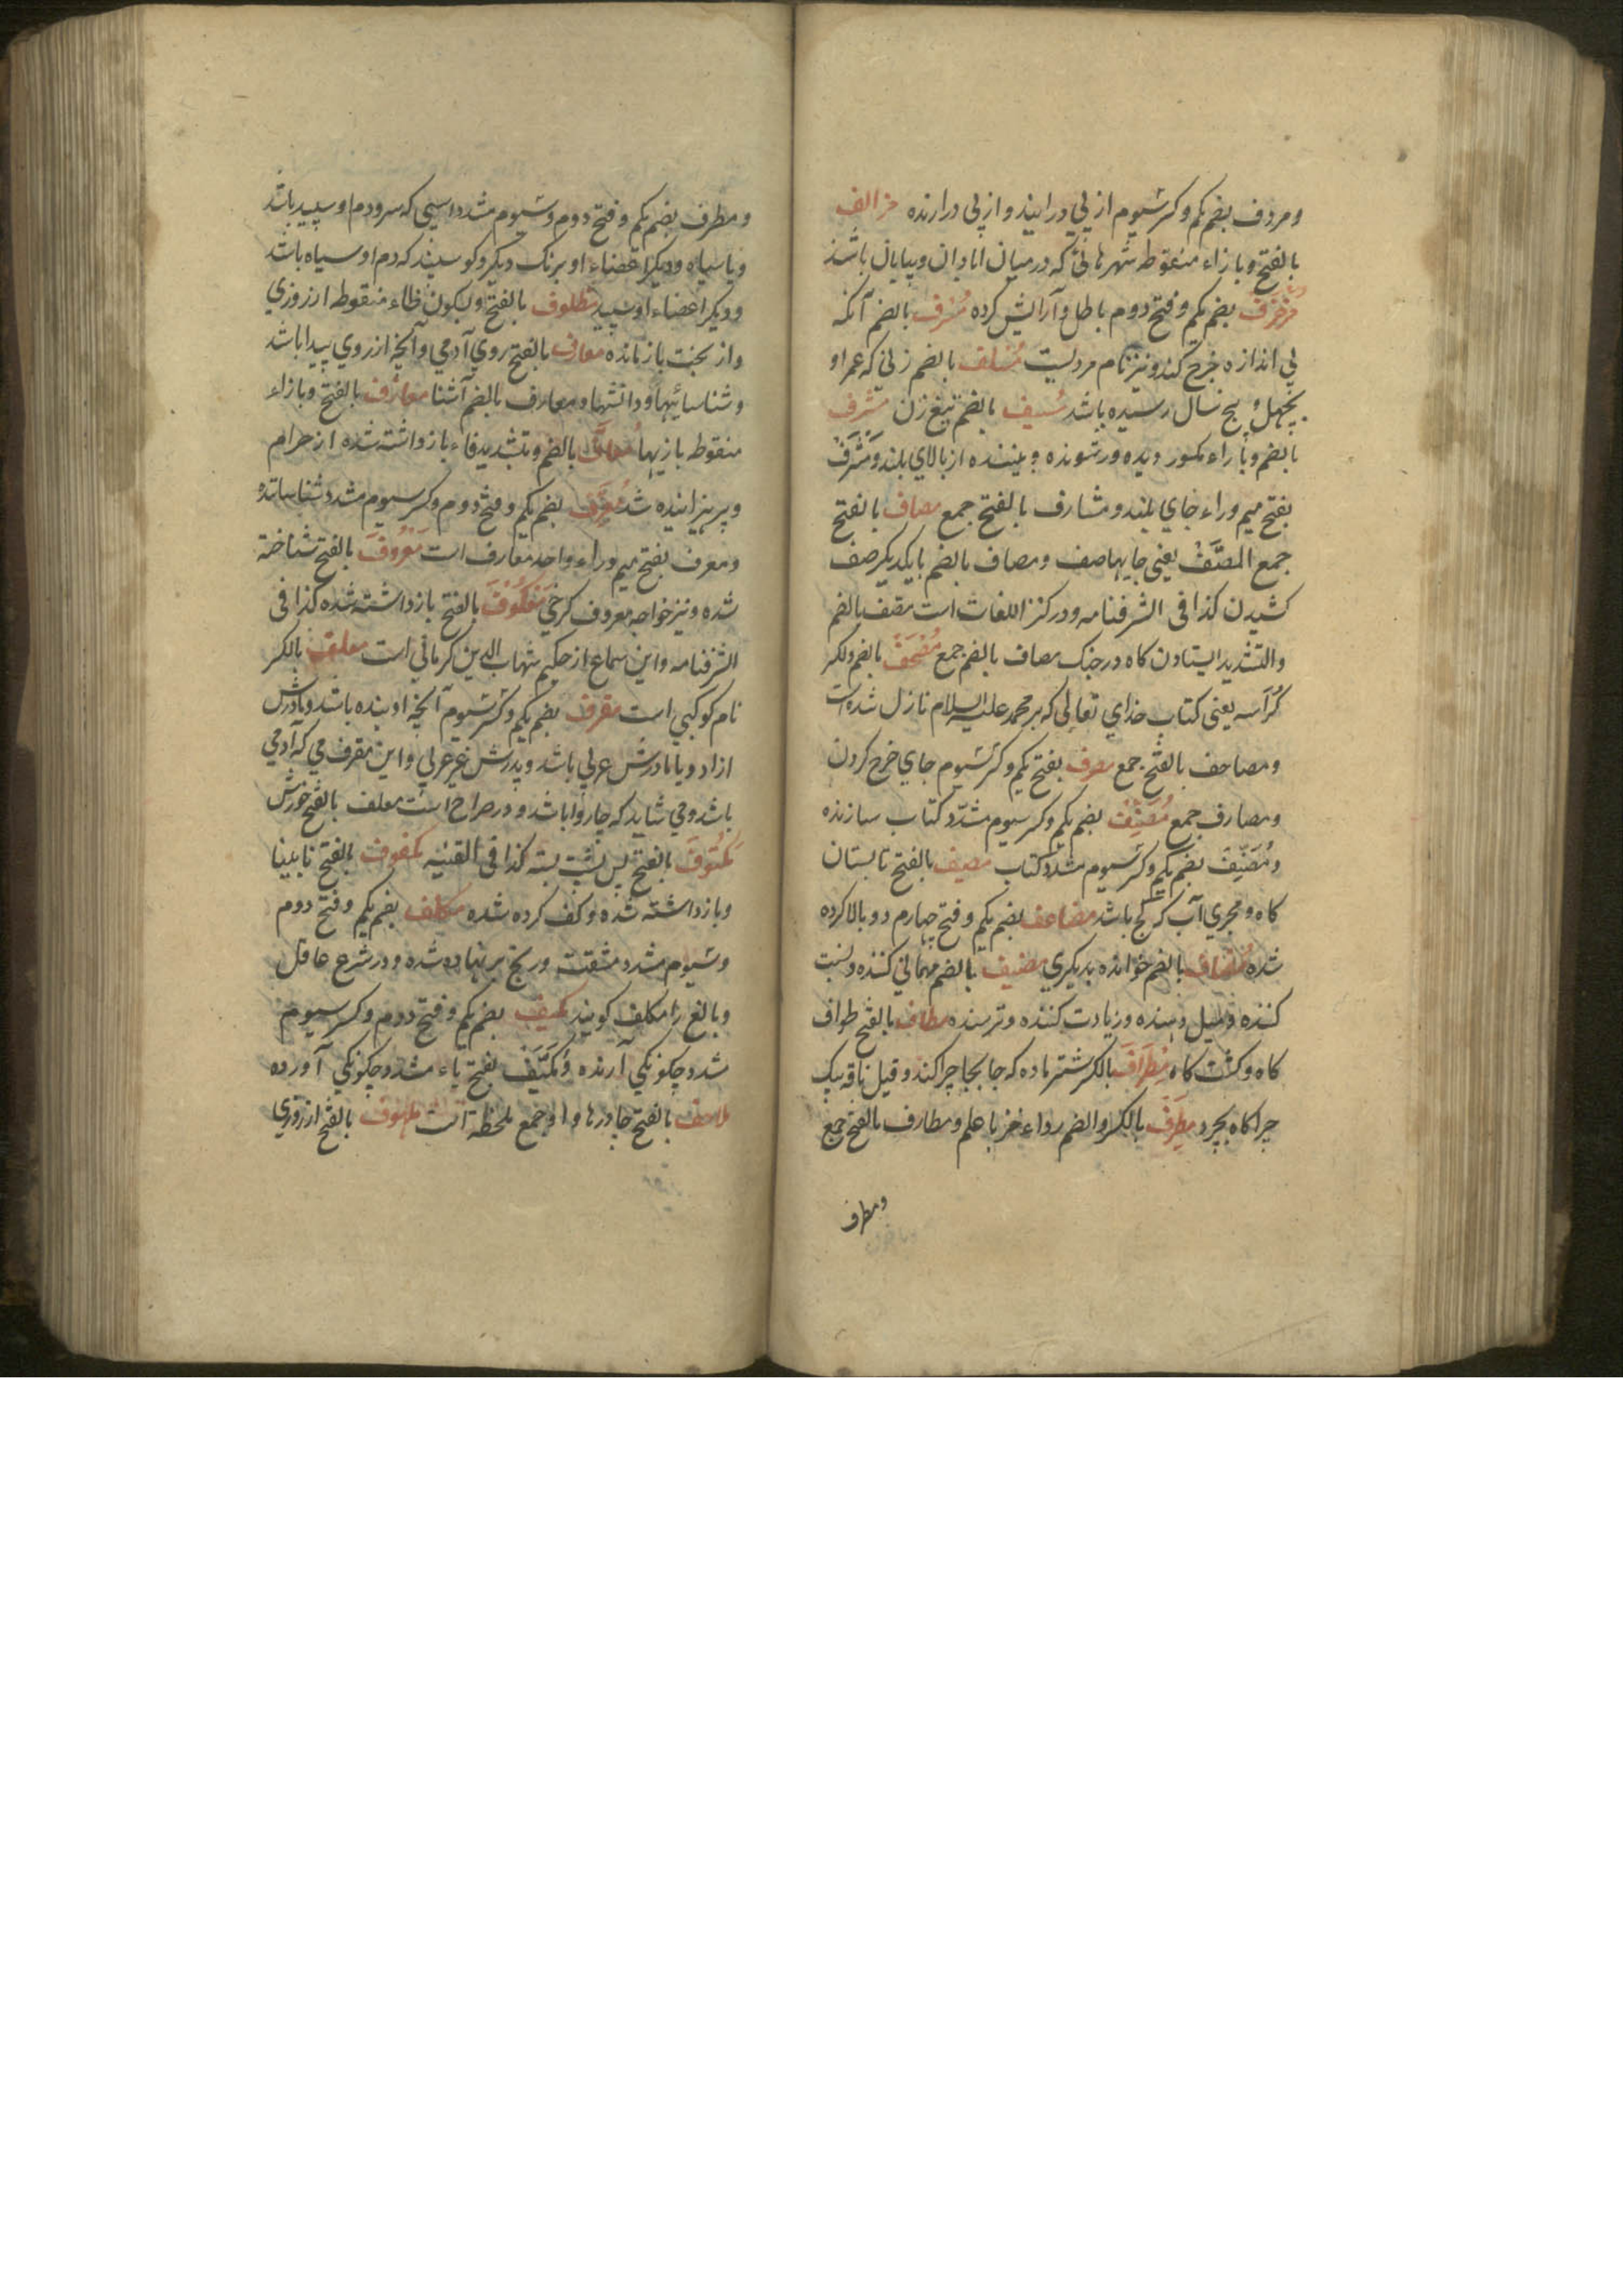 ومردف بضم یکم وکسر سیوم از پی درایند و از پی درارنده مزالف
بالفتح وبا زاء منقوطه شهرهائی که در میان ابادان وبیابان باشند
مزخرف بضم یکم وفتح دوم باطل وآرایش کرده مسرف بالضم آنکه
بی اندازه خرج کند ونیز نام مردیست مسلف بالضم زنی که عمر او
بچهل و پنج سال رسیده باشد مسیف بالضم تیغ زن مشرف
بالضم وبا راء مکسور دیده ور شونده و بیننده از بالای بلند ومشرف
بفتح میم وراء جای بلند ومشارف بالفتح جمع مصاف بالفتح
جمع المصف یعنی جایها صف ومصاف بالضم بایکدیکر صف
کشیدن کذا فی الشرفنامه ودر کنز اللغات است مصف بالضم
والتشدید ایستادن کاه در جنک مصاف بالفم جمع مصحف بالضم ولکسر
کراسه یعنی کتاب خدای تعالی که بر محمد علیه السلام نازل شده است
ومصاحف بالفتح جمع مصرف بفتح یکم وکسر سیوم جای خرج کردن
ومصارف جمع مصنف بضم یکم وکسر سیوم مشدد کتاب سازنده
ومصنف بضم یکم وکسر سیوم مشدد کتاب مصیف بالفتح تابستان
کاه ومجری آب کر کج باشد مضاعف بضم یکم وفتح چهارم دو بالا کرده
شده مضاف بالضم خوانده بدیکری مضیف بالضم مهمانی کننده ونسبت
کننده ومیل دهنده وزیادت کننده وترسنده مطاف بالفتح طواف
کاه وکشت کاه مطراف بالکسر شتر ماده که جابجا چرا کند وقیل ناقه بیک
چراکاه بچرد مطرف بالکسر والضم رداء خز با علم ومطارف بالفتح جمع
ومطرف
ومطرف بضم یکم وفتح دوم وسیوم مشدد اسپی که سر ودم او سپید باشد
ویا سیاه ودیکر اعضاء او برنک دیکر وکوسپند که دم او سیاه باشد
ودیکر اعضاء او سپید مظلوف بالفتح وبسکون ظاء منقوطه از روزی
واز بخت بازمانده معارف بالفتح روی آدمی وآنچه از روی پیدا باشد
وشناسائیها ودانشها ومعارف بالضم آشنا معازف بالفتح وبازاء
منقوطه بازیها معاف بالضم وتشدید فاء بازداشته شده از حرام
وپرهیزانیده شد معرف بضم یکم وفتح دوم وکسر سیوم مشدد شناساننده
ومعرف بفتح میم وراء واحد معارف است معروف بالفتح شناخته
شده ونیز خواجه معروف کرخی معکوف بالفتح بازداشته شده کذا فی
الشرفنامه واین سماع از حکیم شهاب الدین کرمانی است معلف بالکسر
نام کوکبی است مقرف بضم یکم وکسر سیوم آنچه او بنده باشد ومادرش
ازاد ویا مادرش عربی باشد وپدرش غیر عربی واین مقرف می که آدمی
باشد ومی شاید که چاروا باشد ودر صراح است معلف بالفتح خورش
مکتوف بالفتح پس پشت بسته کذا فی القنیه مکفوف بالفتح نابینا
وبازداشته شده وکف کرده شده مکلف بضم یکم وفتح دوم
وسیوم مشدد مشقت ورنج بر نهاده شده ودر شرع عاقل
وبالغ را مکلف کویند مکیف بضم یکم وفتح دوم وکسر سیوم
مشدد چکونکی آرنده ومکیف بفتح یاء مشدد چکونکی آورده
ملاحف بالفتح چادرها واو جمع ملحفه است ملهوف بالفتح از روزی